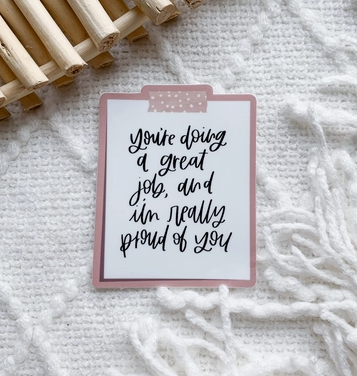 you're doing
a great
job, and
i'm really
proud of you